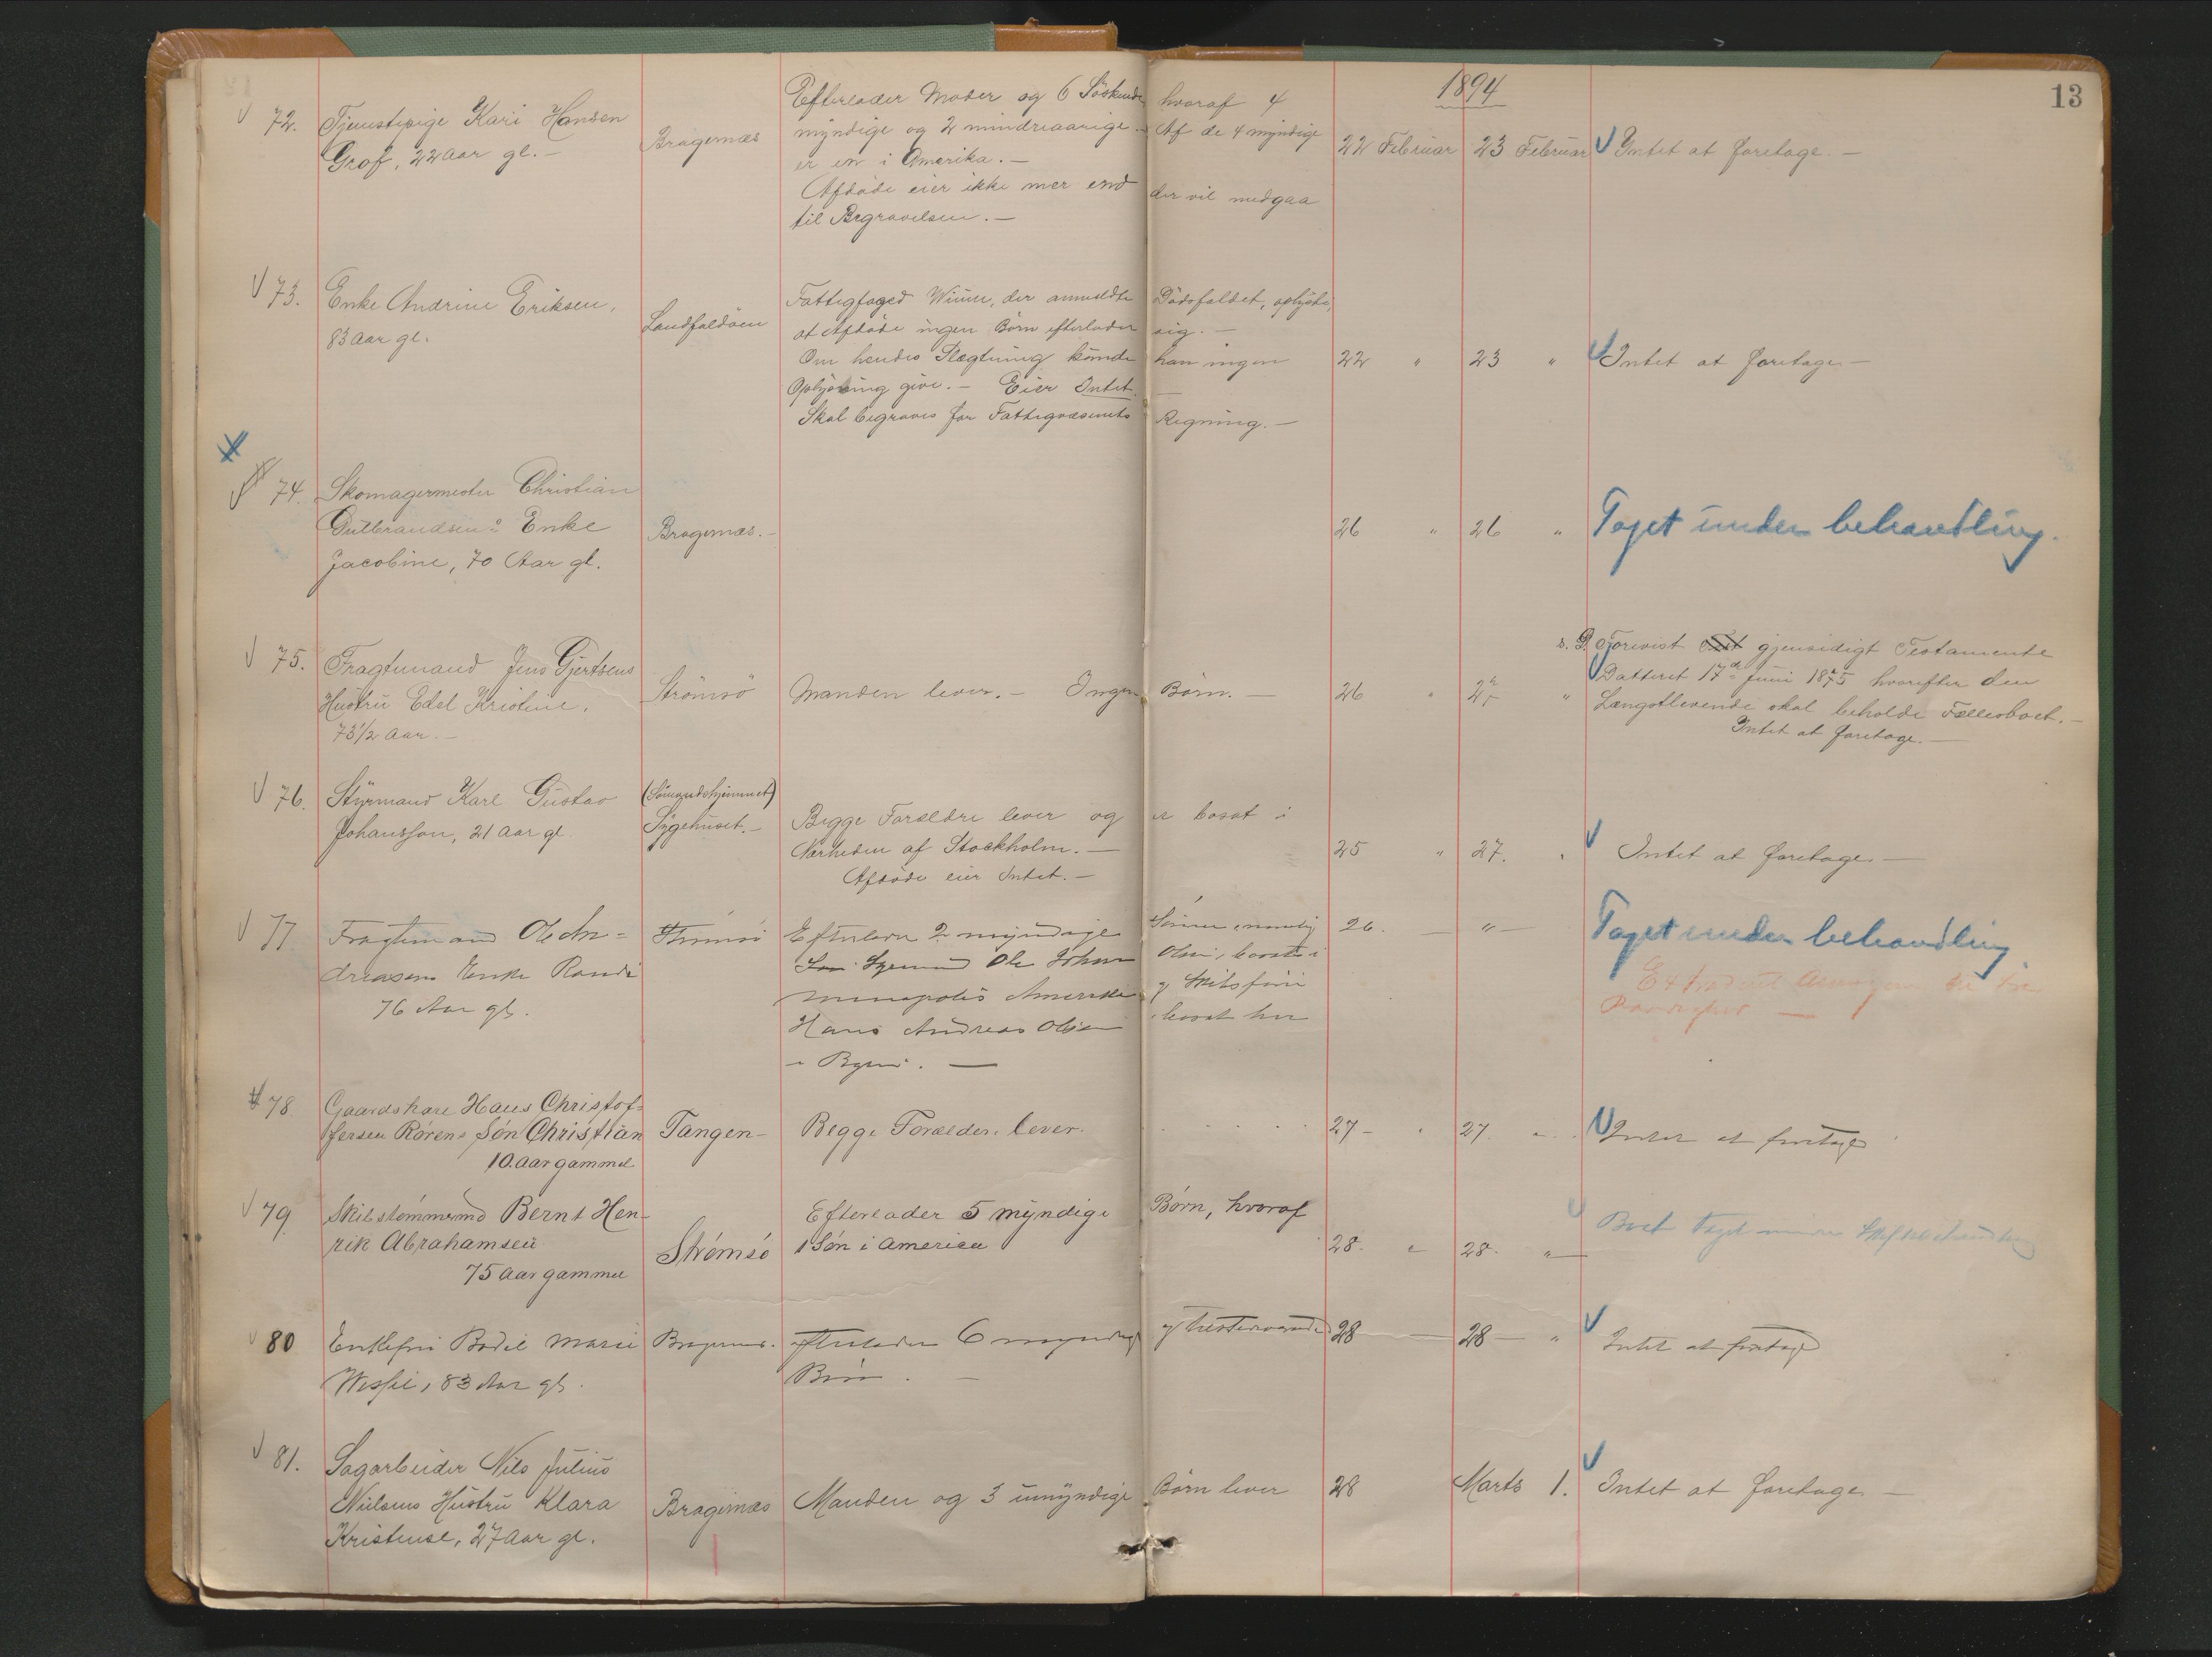 1894
13
72. Tjenestepige Kari Hansen
Grof, 22 Aar gl. —
Bragernæs
Efterlader Moder og 6 Söskende hvoraf 4
myndige og 2 mindreaarige. — Af de 4 myndige
er en i Amerika. —
Afdöde eier ikke mer end der vil medgaa
til Begravelsen. —
22 Februar
23 Februar
Intet at foretage. —
73. Enke Andrine Eriksen,
83 Aar gl.
Landfaldöen
Fattigfoged Wiium, der anmeldte Dödsfaldet, oplyste,
at Afdöde ingen Börn efterlader sig. —
Om hendes Slægtning kunde han ingen
Oplysning give. — Eier Intet.
Skal begraves for Fattigvæsenets Regning. —
22 "
23 "
Intet at foretage —
74. Skomagermester Christian
Gulbrandsens Enke
Jacobine, 70 Aar gl.
Bragernæs. —
26 "
26 "
Taget under behandling.
75. Fragtemand Jens Gjertsens
Hustru Edel Kristine,
73 1/2 Aar. —
Strömsö
Manden lever. — Ingen Börn. —
26 "
"
s. D. Forevist gjensidigt Testamente
Datteret 17de Juni 1875 hvorefter den
Længstlevende skal beholde Fællesboet. —
Intet at foretage. —
76. Styrmand Karl Gustav
Johansson, 21 Aar gl.
(Sömandshjemmet)
Sygehuset. —
Begge Forældre lever og er bosat i
Nærheden af Stockholm. —
Afdöde eier Intet. —
25 "
27. "
Intet at foretage. —
77 Fragtemand Ole An=
dreasens Enke Randi
76 Aar gl.
Strömsö
Efterlader 2 myndige Sönner nemlig
Ole Johan Olsen, bosat i
Amerika og
Hans Andreas Olsen bosat her
i Byen. —
26. —
" —
Taget under behandling
78 Gaardskare Hans Christof=
fersen Rørens Søn Christian
10. aar gammel
Tangen —
Begge Forælder. lever.
27 — "
27. "
Intet at foretage
79. Skibstømmermd Bernt Hen-
rik Abrahamsen
75 aar gammel
Strömsö
Efterlader 5 myndige Børn, hvoraf
1 Søn i America
28. "
28. " —
Boet taget under Skiftebehandling
80 Enkefru Bodil Marie
Wessel, 83 Aar gl.
Bragernæs.
efterlader 6 myndige og tilstedeværende
Börn. —
28 —
28 — "
Intet at foretage
81. Sagarbeider Nils Julius
Nielsens Hustru Klara
Kristense, 27 Aar gl.
Bragernæs
Manden og 3 umyndige Börn lever
28
Marts 1.
Intet at foretage —